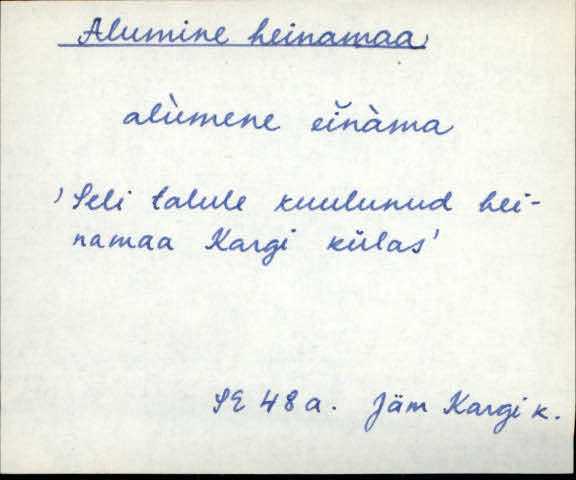 Alumine heinamaa
alùmene eĭnàma
'Seli talule kuulunud hei-
namaa Kargi külas'
SE 48 a. Jäm Kargi k.